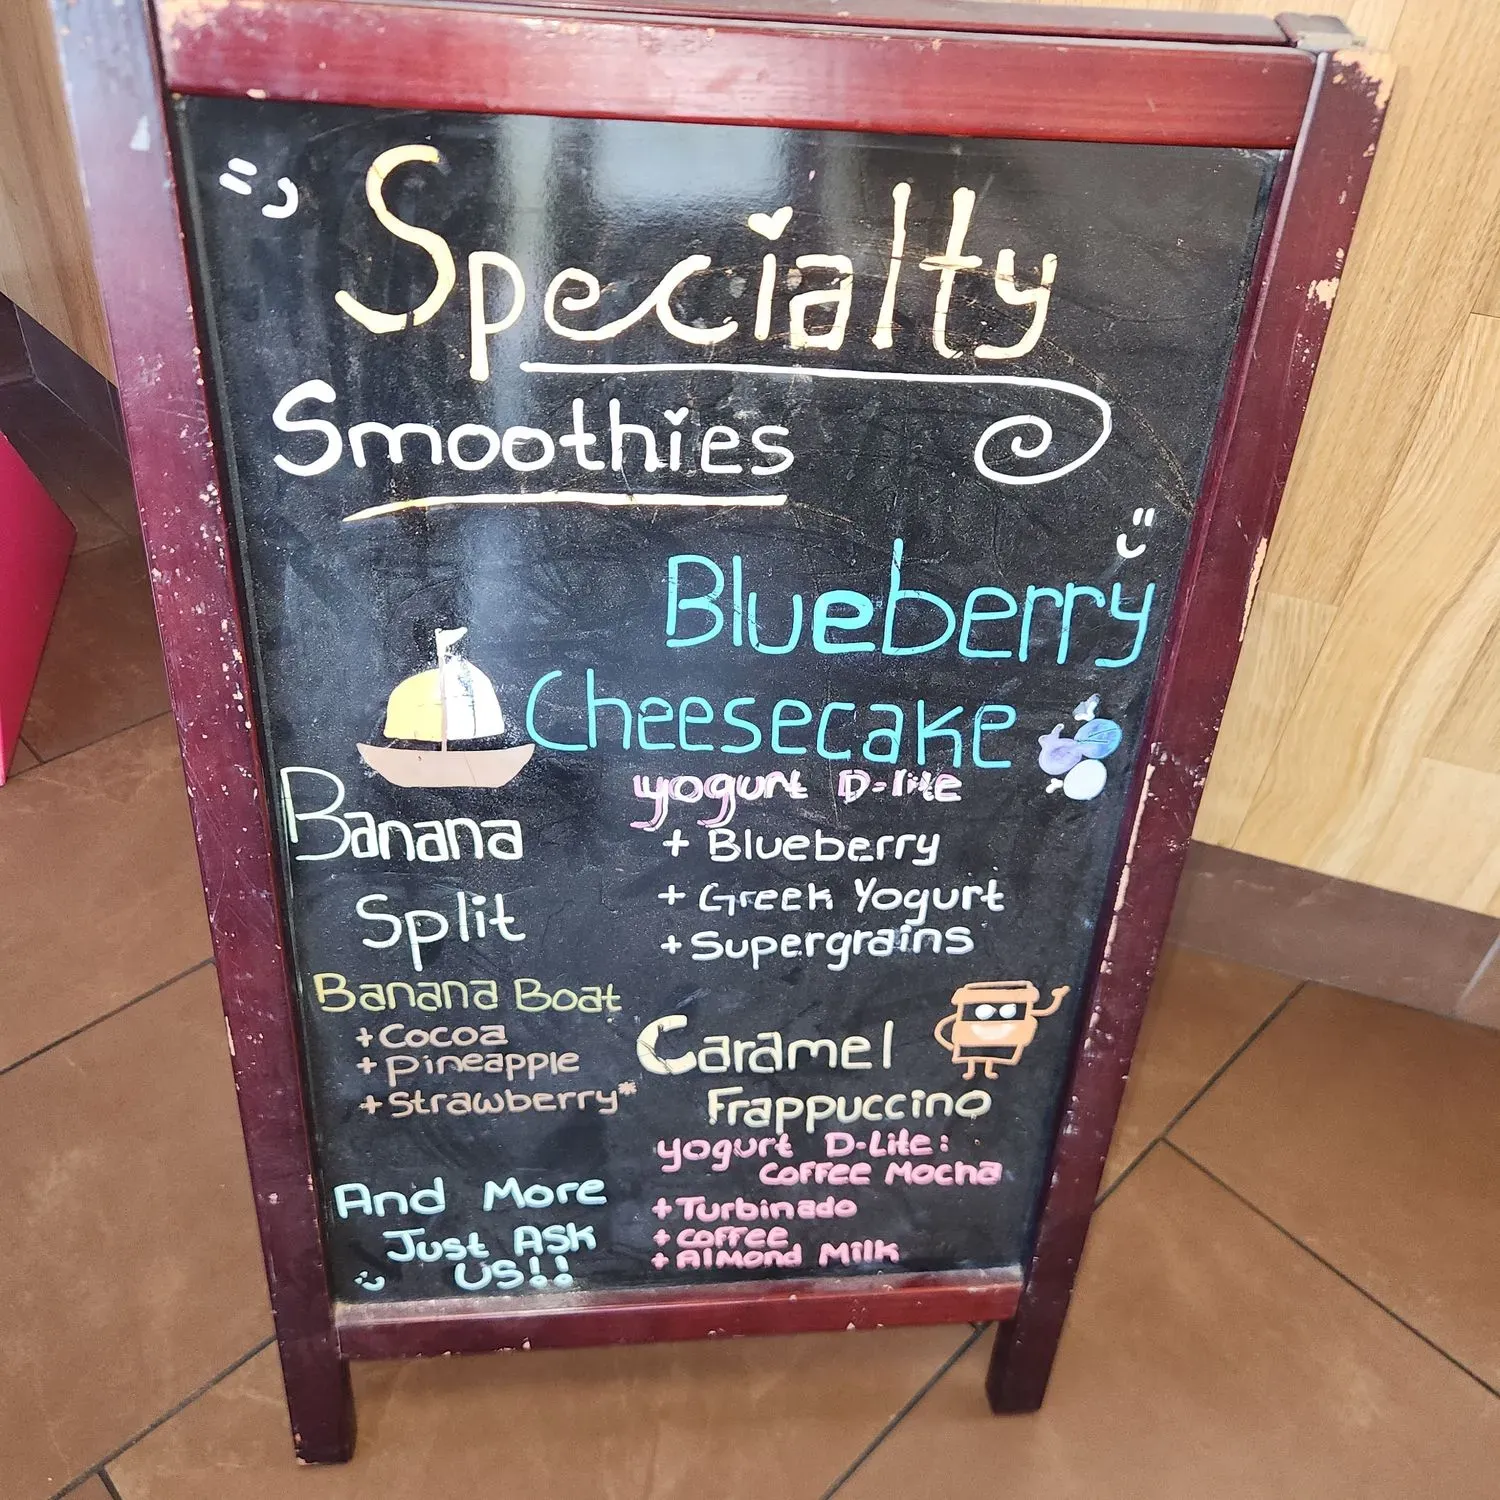 Specialty
Smoothies
Blueberry
Cheesecake
yogurt D-lite
+ Blueberry
+ Greek Yogurt
+ Supergrains
Banana
Split
Banana Boat
+ Cocoa
+ Pineapple
+ Strawberry*
Caramel
Frappuccino
yogurt D-Lite:
Coffee Mocha
+ Turbinado
+ Coffee
+ Almond Milk
And More
Just Ask
US!!